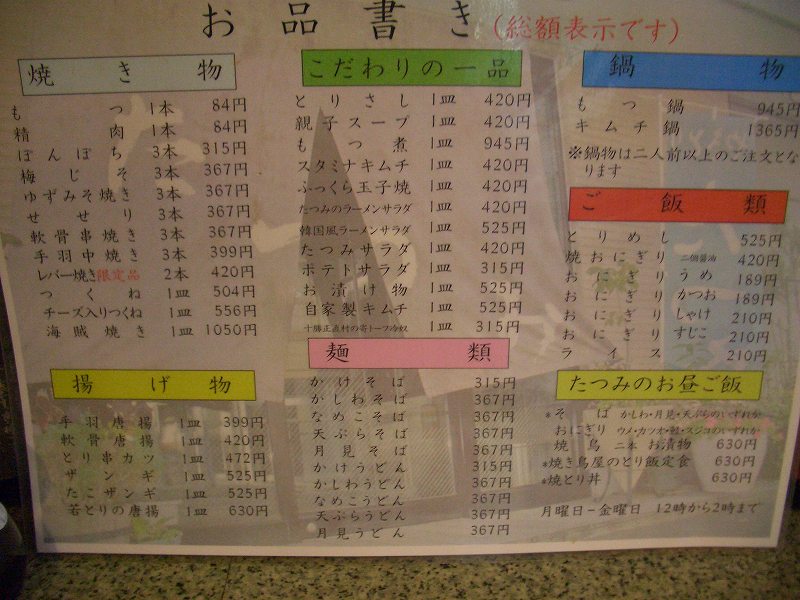 お品書き(総額表示です)
焼き物
もつ 1本 84円
精肉 1本 84円
ぼんぼち 3本 315円
梅じそ 3本 367円
ゆずみそ焼き 3本 367円
せせり 3本 367円
軟骨串焼き 3本 367円
手羽中焼き 3本 399円
レバー焼き限定品 2本 420円
つくね 1皿 504円
チーズ入りつくね 1皿 556円
海賊焼き 1皿 1050円
揚げ物
手羽唐揚 1皿 399円
軟骨唐揚 1皿 420円
とり串カツ 1皿 472円
ザンギ 1皿 525円
たこザンギ 1皿 525円
若とりの唐揚 1皿 630円
こだわりの一品
とりさし 1皿 420円
親子スープ 1皿 420円
もつ煮 1皿 945円
スタミナキムチ 1皿 420円
ふっくら玉子焼 1皿 420円
たつみのラーメンサラダ 1皿 420円
韓国風ラーメンサラダ 1皿 525円
たつみサラダ 1皿 420円
ポテトサラダ 1皿 315円
お漬け物 1皿 525円
自家製キムチ 1皿 525円
十勝正直村の寄トーフ冷奴 1皿 315円
麺類
かけそば 315円
かしわそば 367円
なめこそば 367円
天ぷらそば 367円
月見そば 367円
かけうどん 315円
かしわうどん 367円
なめこうどん 367円
天ぷらうどん 367円
月見うどん 367円
鍋物
もつ鍋 945円
キムチ鍋 1365円
※鍋物は二人前以上のご注文とな
ります
ご飯類
とりめし 525円
焼おにぎり 二個醤油 420円
おにぎり うめ 189円
おにぎり かつお 189円
おにぎり しゃけ 210円
おにぎり すじこ 210円
ライス 210円
たつみのお昼ご飯
*そば かしわ・月見・天ぷらのいずれか
おにぎり ウメ・カツオ・鮭・スジコのいずれか
焼鳥 二本 お漬物 630円
*焼き鳥屋のとり飯定食 630円
*焼とり丼 630円
月曜日-金曜日 12時から2時まで